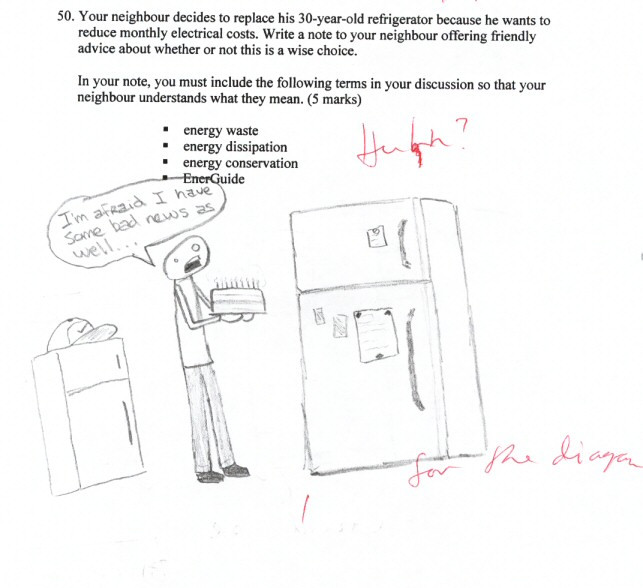 50. Your neighbour decides to replace his 30-year-old refrigerator because he wants to
reduce monthly electrical costs. Write a note to your neighbour offering friendly
advice about whether or not this is a wise choice.
In your note, you must include the following terms in your discussion so that your
neighbour understands what they mean. (5 marks)
▪ energy waste
▪ energy dissipation
▪ energy conservation
▪ EnerGuide
Huhh?
I'm afraid I have
some bad news as
well...
for the diagra
1